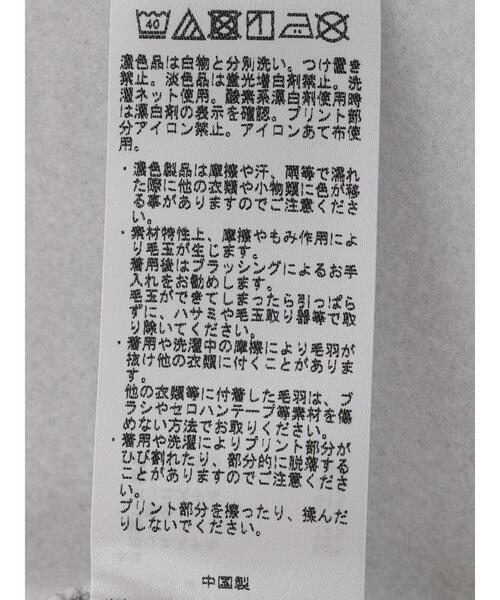 40
濃色品は白物と分別洗い。つけ置き
禁止。淡色品は蛍光増白剤禁止。洗
濯ネット使用。酸素系漂白剤使用時
は漂白剤の表示を確認。プリント部
分アイロン禁止。アイロンあて布使
用。
・濃色製品は摩擦や汗、雨等で濡れ
た際に他の衣類や小物類に色が移
る事がありますのでご注意くださ
い。
・素材特性上、摩擦やもみ作用によ
り毛玉が生じます。
着用後はブラッシングによるお手
入れをお勧めします。
毛玉ができてしまったら引っぱら
ずに、ハサミや毛玉取り器等で取
り除いてください。
・着用や洗濯中の摩擦により毛羽が
抜け他の衣類に付くことがありま
す。
他の衣類等に付着した毛羽は、ブ
ラシやセロハンテープ等素材を傷
めない方法でお取りください。
・着用や洗濯によりプリント部分が
ひび割れたり、部分的に脱落する
ことがありますのでご注意くださ
い。
プリント部分を擦ったり、揉んだ
りしないでください。
中国製